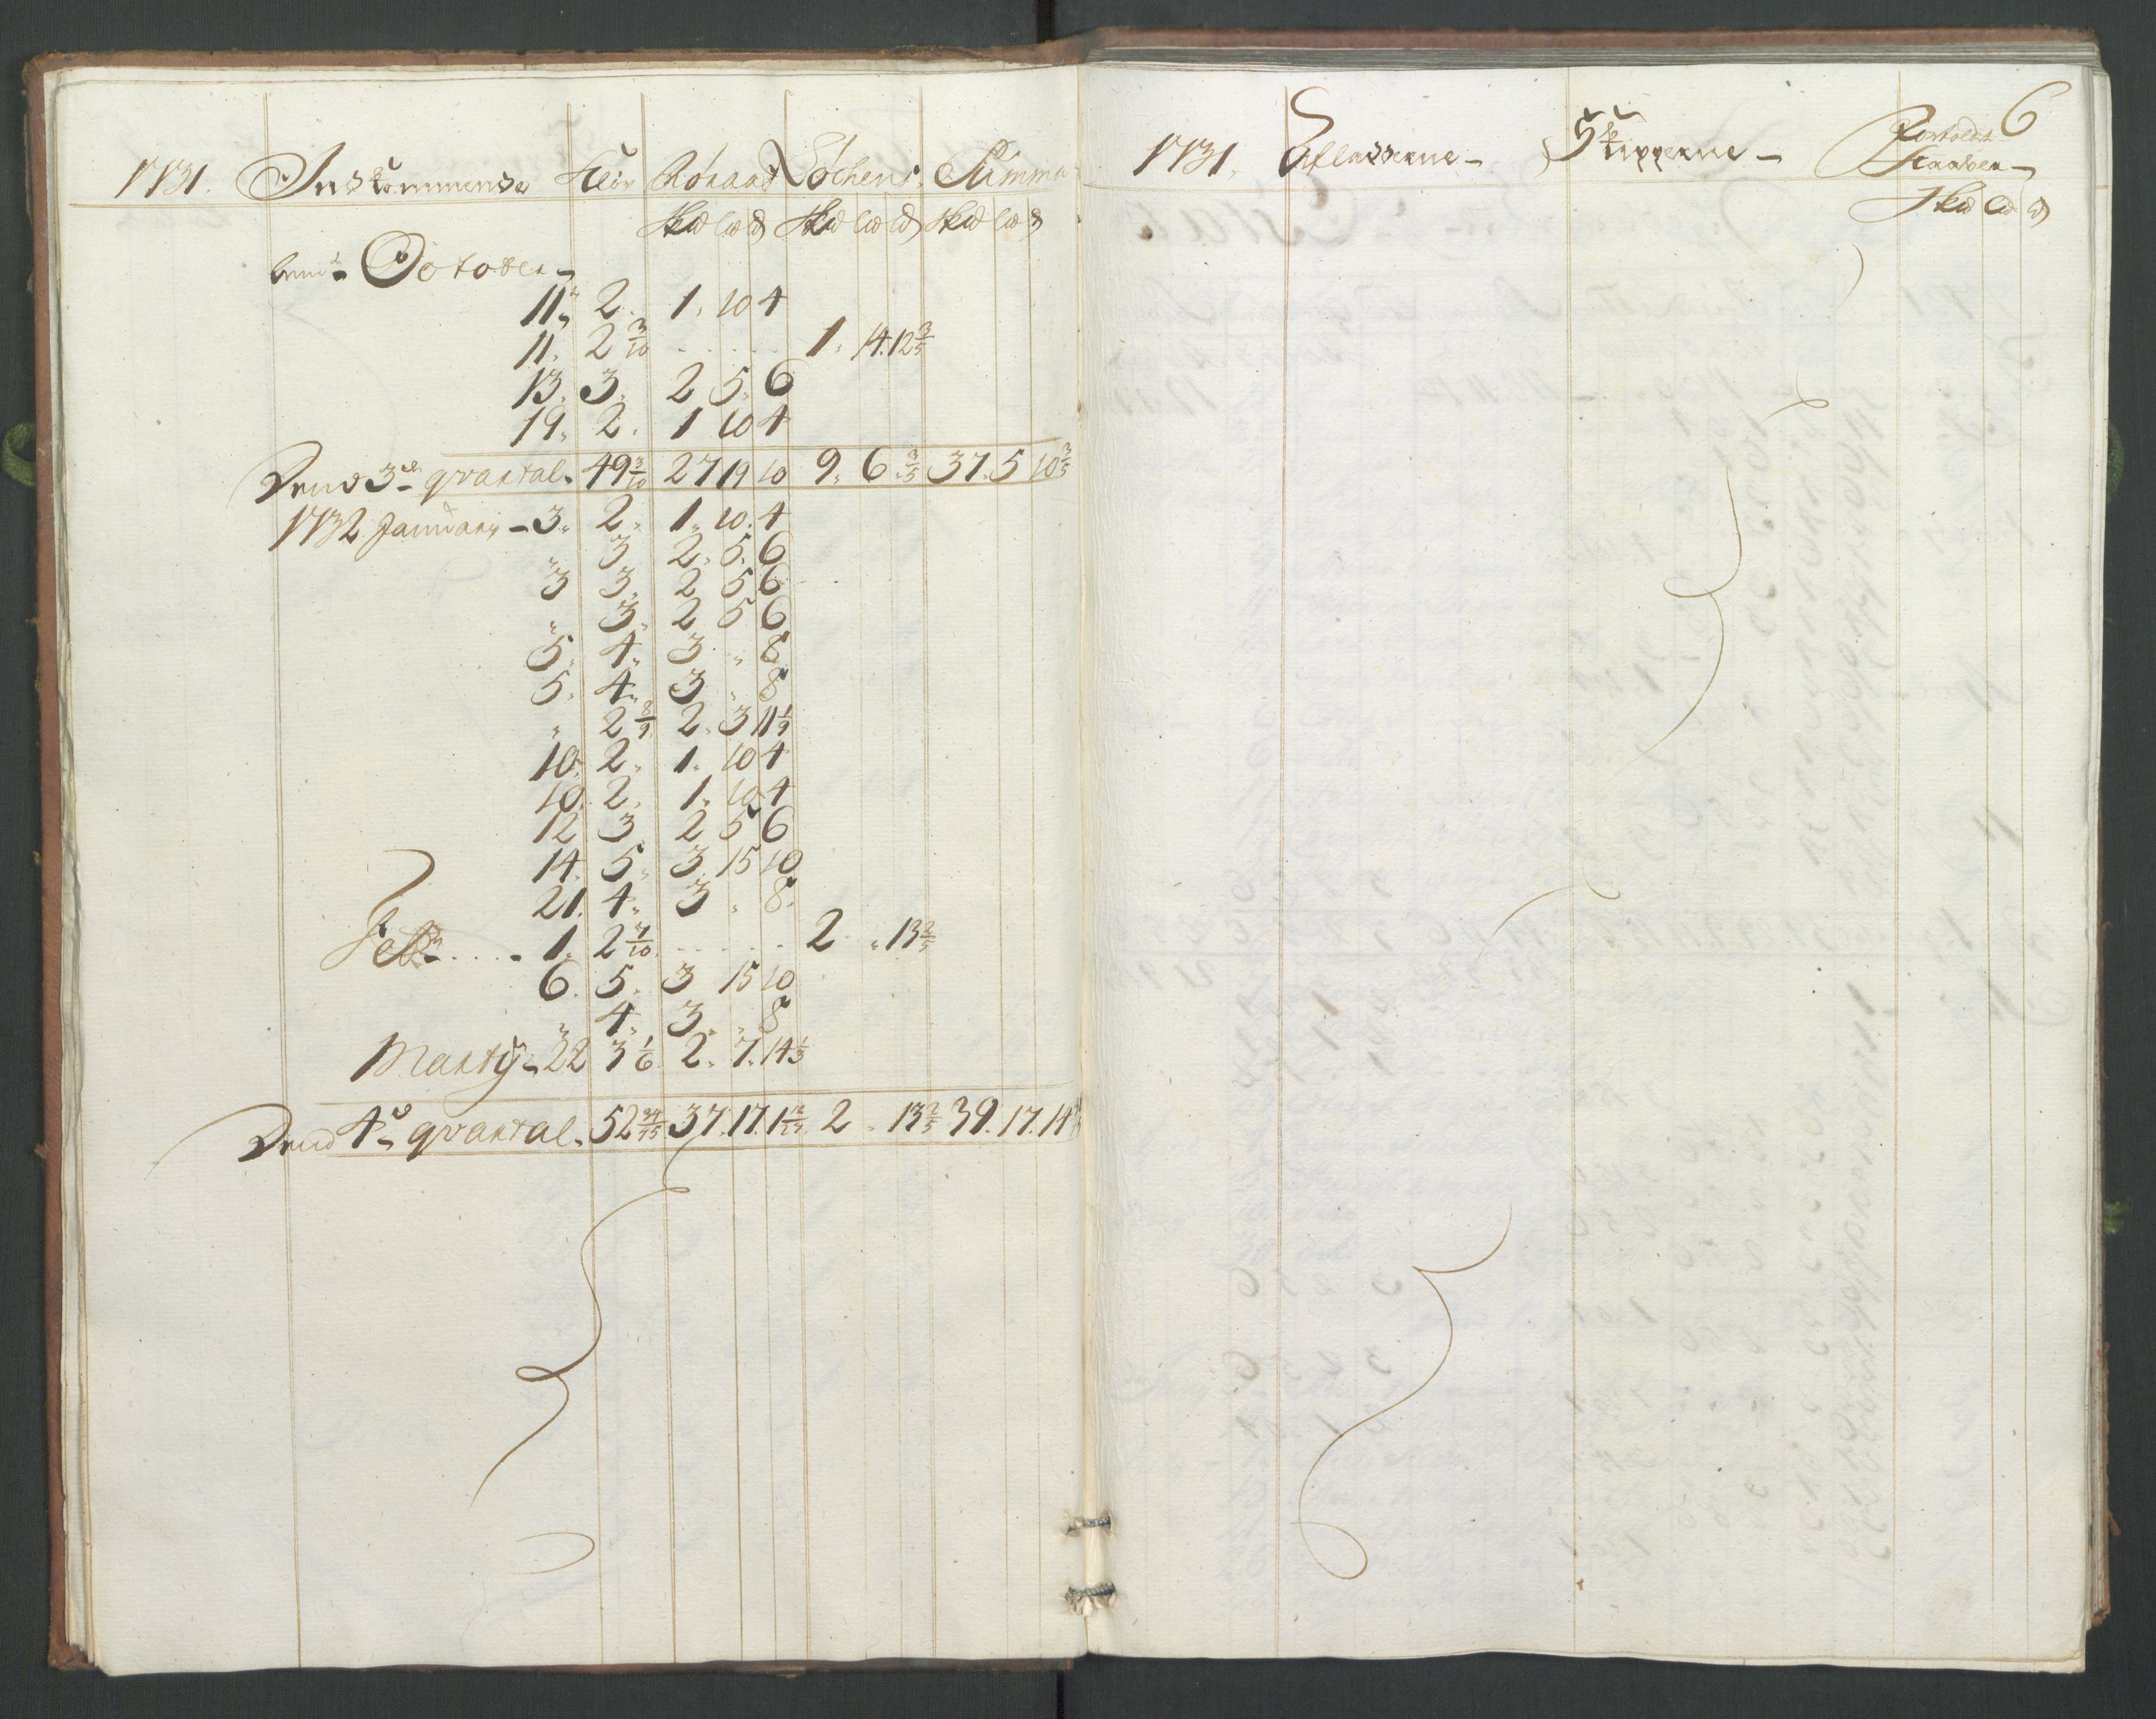 1731. Indkommende Clör Röraad Löchens. Summa
Skd ld d Skd ld d Skd ld d
October
11. 2. 1. 10 4
11. 2 3/10 1. 14. 12 3/5
13. 3. 2 5. 6
19. 2. 1 10 4
Dend 3de qvartal. 49 3/10 27 19 10 9. 6 3/5 37. 5 10 3/5
1732 January - 3. 2. 1. 10. 4
" 3. 2. 5. 6
3 3. 2 5 6
" 3. 2 5 6
5. 4. 3 " 8
5. 4. 3 " 8
" 2 8/9 2. 3 11 1/9
10. 2. 1. 10 4
10. 2. 1. 10 4
12 3. 2 5 6
14. 5. 3. 15 10
21. 4. 3 " 8.
Feb. 1. 2 7/10 2 " 13 2/5
6. 5. 3 15 10
" 4. 3. " 8
Marty - 22 3 1/6 2. 7. 14 1/3
Dend 4de qvartal. 52 37. 17. 1 2 " 13 2/5 39. 17. 14
6
1731. Aflasserne - Skipperne - Fortolde
Staaben -
Skd ld d